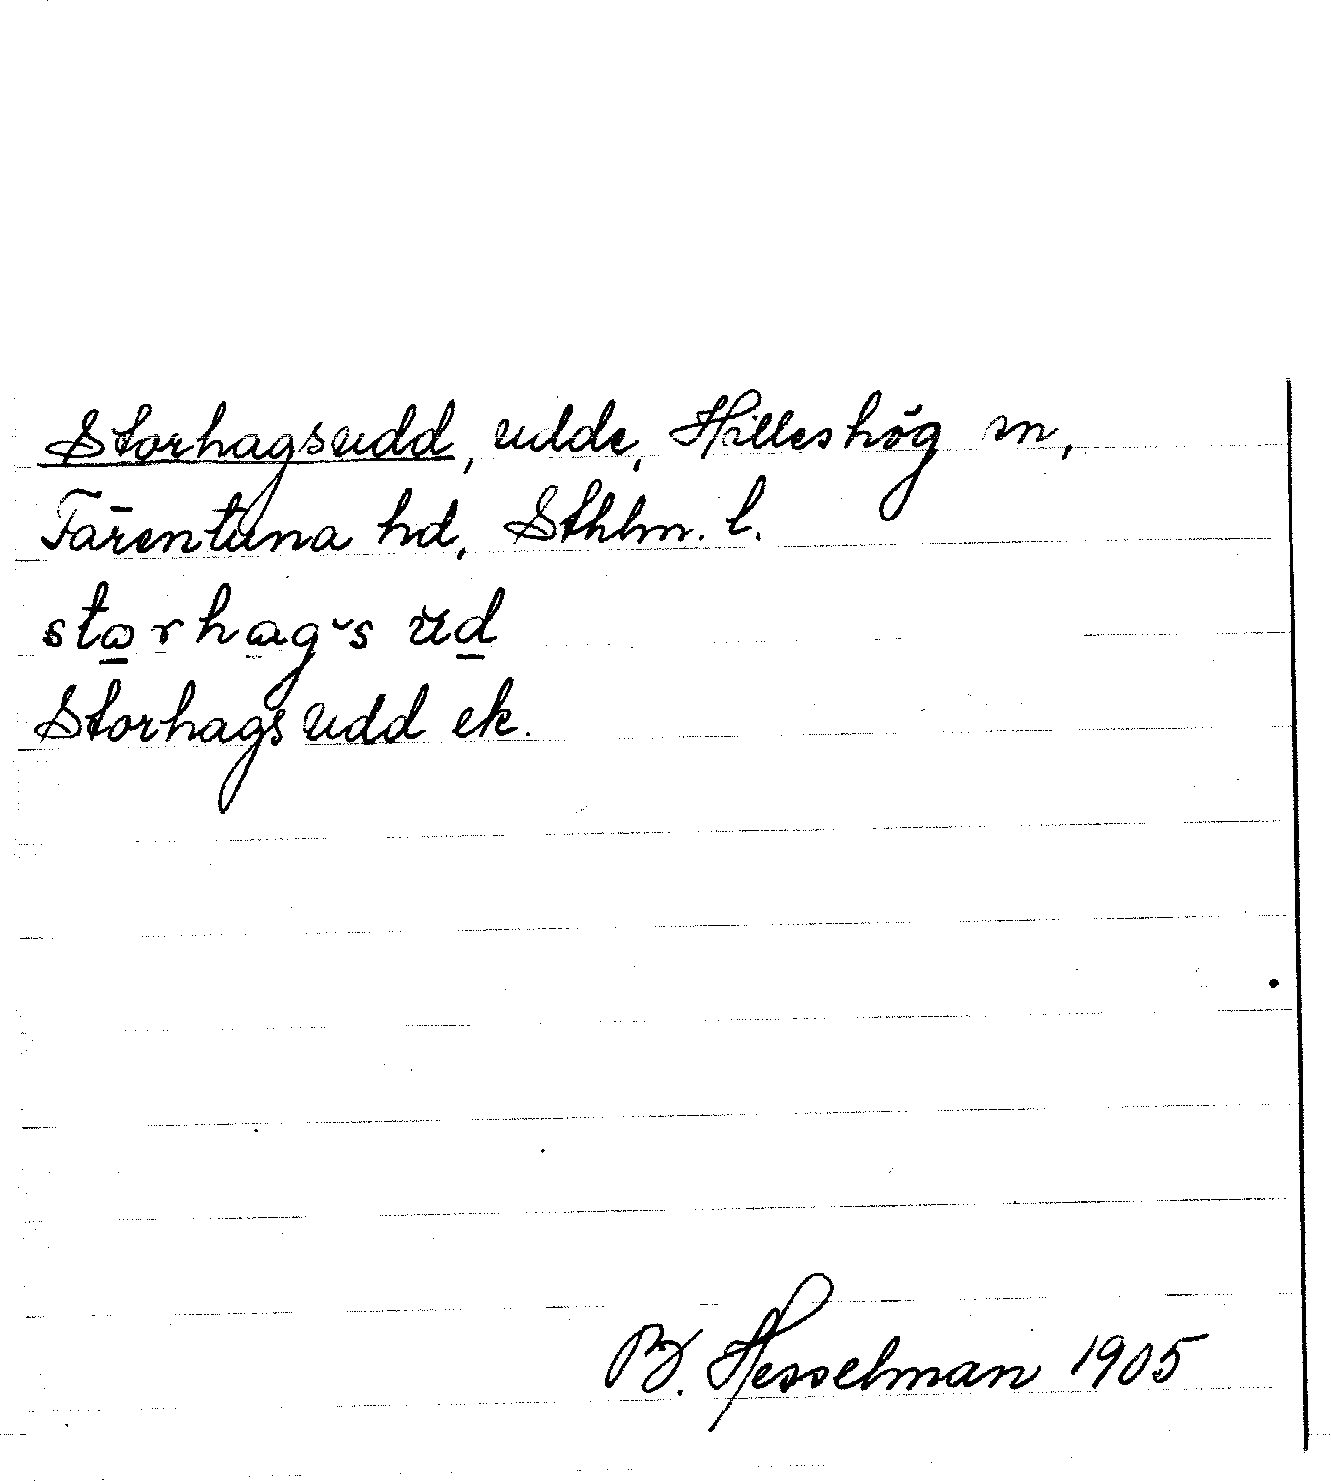 Storhagsudd, udde, Hilleshög sn,
Färentuna hd, Sthlm. l.
storhag˘s ŭd
Storhagsudd ek.
B. Hesselman 1905